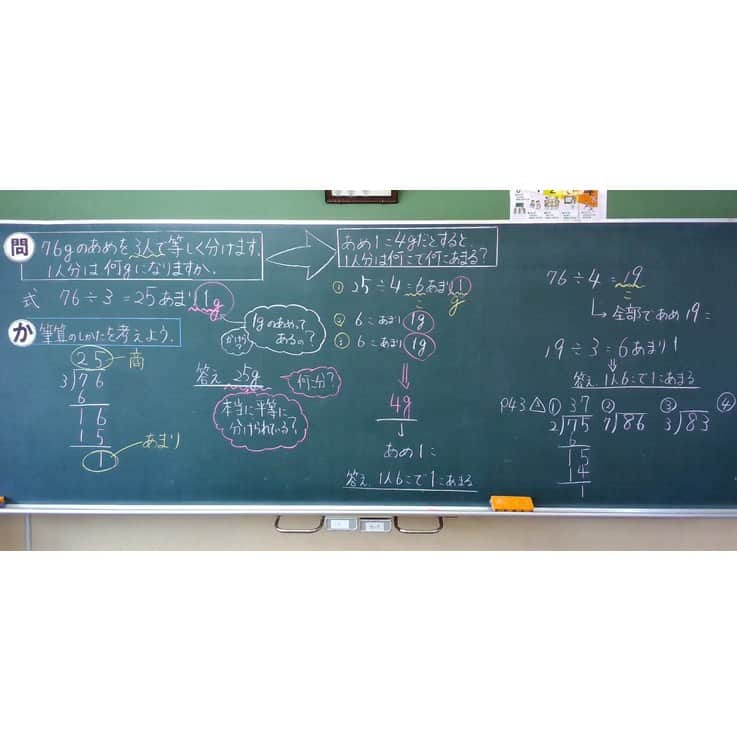 問 76gのあめを3人で等しく分けます。
1人分は何gになりますか。
式 76÷3=25あまり1g
か 筆算のしかたを考えよう。
25 商
3)76
6
16
15
1 あまり
1gのあめって
あるの?
かけら?
答え 25g
何こ分?
本当に平等に
分けられている?
あめ1こ4gだとすると、
1人分は何こで何こあまる?
① 25÷4=6あまり1
こ g
② 6こあまり1g
③ 6こあまり1g
⇓
4g
↓
あめ1こ
答え 1人6こで1こあまる
76÷4=19
こ
↳全部であめ19こ
19÷3=6あまり1
答え 1人6こで1こあまる
P43 △1 ① 37 ② ③ ④
2)75 7)86 3)83
6
15
14
1